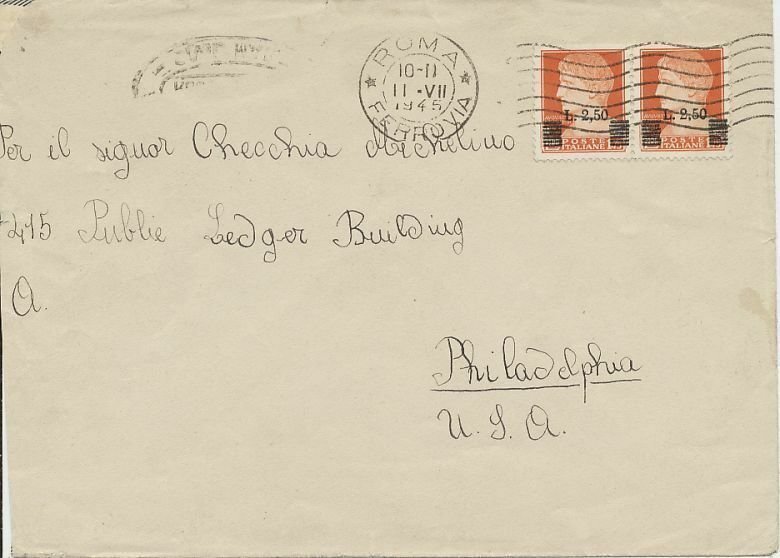 ROMA
10-11
11·VII
1945
FERROVIA
L. 2,50
POSTE
ITALIANE
L. 2,50
POSTE
ITALIANE
Per il signor Checchia Michelino
415 Public Ledger Building
A.
Philadelphia
U.S.A.